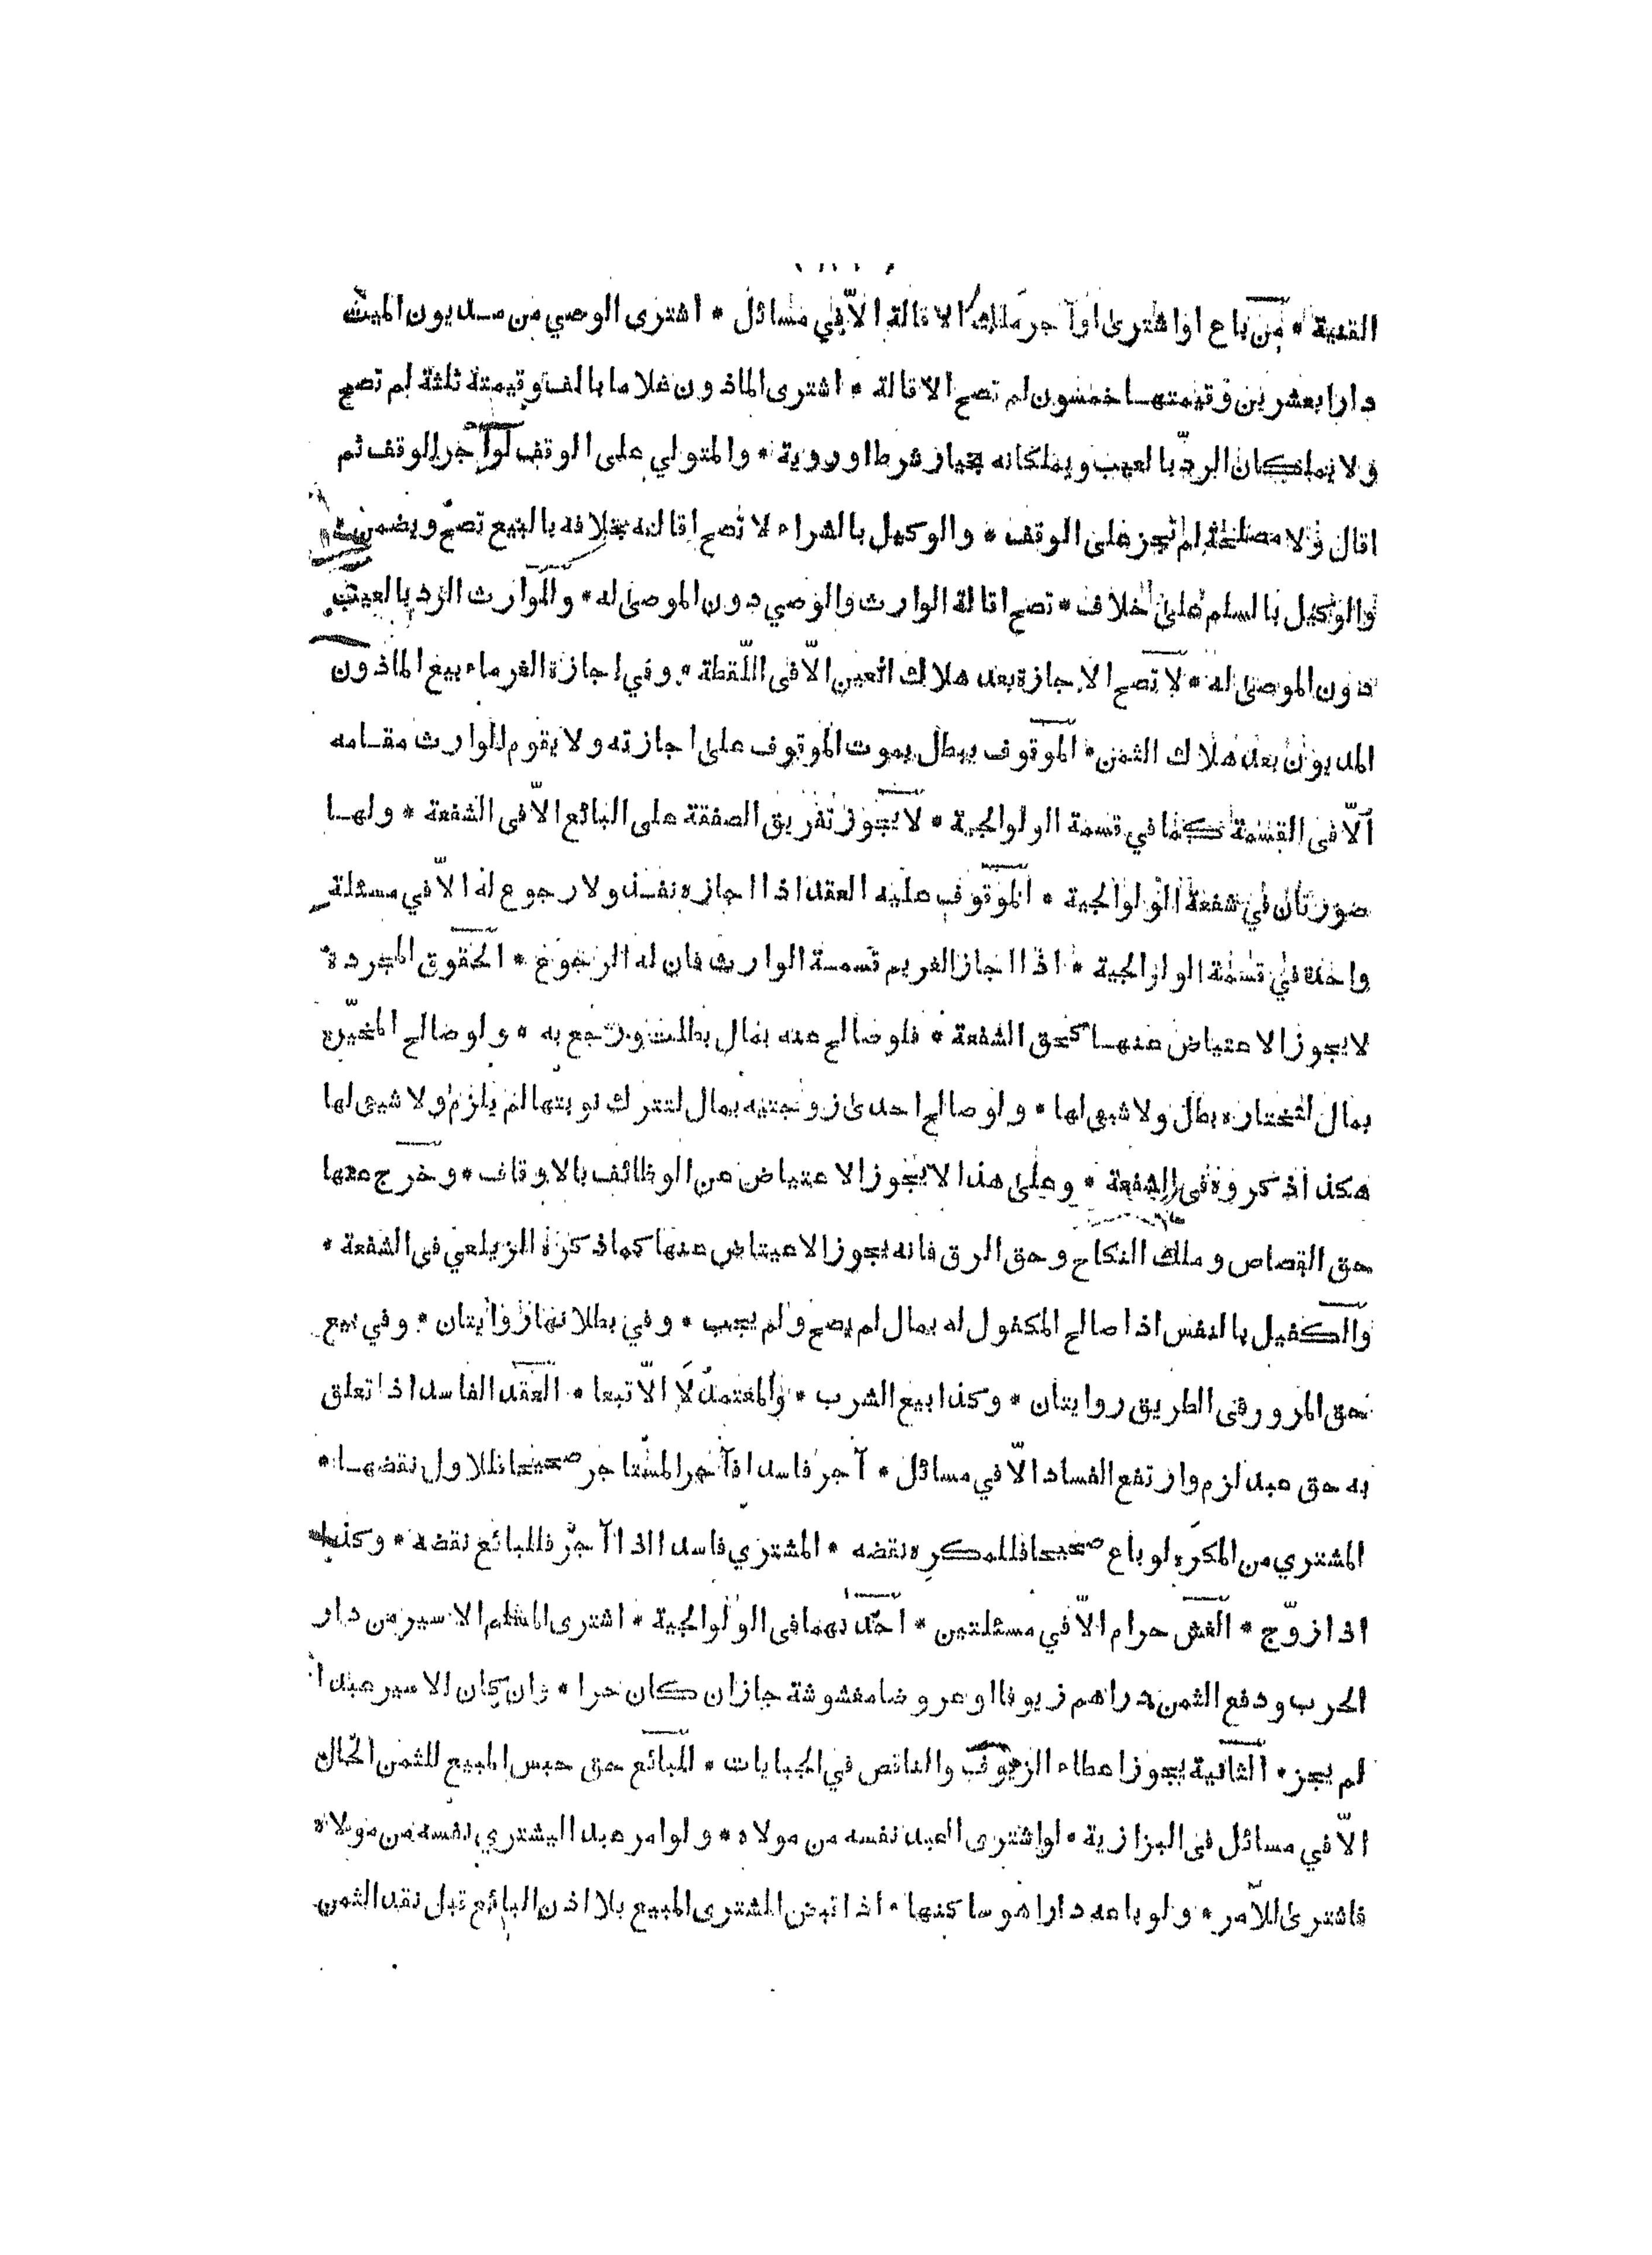 القنية * من باع او اشترى او آجر ملك الاقالة الّا في مسائل * اشترى الوصي من مديون الميت
دارا بعشرين وقيمتها خمسون لم تصح الاقالة * اشترى الماذون غلاما بالف وقيمته ثلثة لم تصح
ولا يملكان الردّ بالعيب ويملكانه بخيار شرط او روية * والمتولي على الوقف لو آجر الوقف ثم
اقال ولا مصلحة لم تجز على الوقف * والوكيل بالشراء لا تصح اقالته بخلافه بالبيع تصحّ ويضمن *
والوكيل بالسلم على خلاف * تصح اقالة الوارث والوصي دون الموصى له * وللوارث الرد بالعيب
دون الموصى له * لا تصح الاجازة بعد هلاك العين الّا في اللّقطة * وفي اجازة الغرماء بيع الماذون
المديون بعد هلاك الثمن * الموقوف يبطل بموت الموقوف على اجازته ولا يقوم الوارث مقامه
الّا في القسمة كما في قسمة الولوالجية * لا يجوز تفريق الصفقة على البائع الّا في الشفعة * ولها
صورتان في شفعة الولوالجية * الموقوف عليه العقد اذا اجازه نفذ ولا رجوع له الّا في مسئلة
واحدة في قسمة الولوالجية * اذا اجاز الغريم قسمة الوارث فان له الرجوع * الحقوق المجردة
لا يجوز الاعتياض عنها كحق الشفعة * فلو صالح عنه بمال بطلت ورجع به * ولو صالح المخيّرة
بمال لتختاره بطل ولا شيء لها * ولو صالح احدى زوجتيه بمال لتترك نوبتها لم يلزم ولا شيء لها
هكذا ذكروه في الشفعة * وعلى هذا لا يجوز الاعتياض عن الوظائف بالاوقاف * وخرج عنها
حق القصاص وملك النكاح وحق الرق فانه يجوز الاعتياض عنها كما ذكره الزيلعي في الشفعة *
والكفيل بالنفس اذا صالح المكفول له بمال لم يصح ولم يجب * وفي بطلانها روايتان * وفي بيع
حق المرور في الطريق روايتان * وكذا بيع الشرب * والمعتمد لا الّا تبعا * العقد الفاسد اذا تعلق
به حق عبد لزم وارتفع الفساد الّا في مسائل * آجر فاسدا فآجر المستاجر صحيحا فللاول نقضها *
المشتري من المكره لو باع صحيحا فللمكره نقضه * المشتري فاسدا اذا آجر فللبائع نقضه * وكذا
اذا زوّج * الغش حرام الّا في مسئلتين * احدٰهما في الولوالجية * اشترى المسلم الاسير من دار
الحرب ودفع الثمن دراهم زيوفا او عروضا مغشوشة جاز ان كان حرا * وان كان الاسير عبدا
لم يجز * الثانية يجوز اعطاء الزيوف والناقص في الجبايات * للبائع حق حبس المبيع للثمن الحّال
الّا في مسائل في البزازية * لو اشترى العبد نفسه من مولاه * ولو امر عبدا ليشتري نفسه من مولاه
فاشترى للآمر * ولو باعه دارا هو ساكنها * اذا قبض المشترى المبيع بلا اذن البائع قبل نقد الثمن